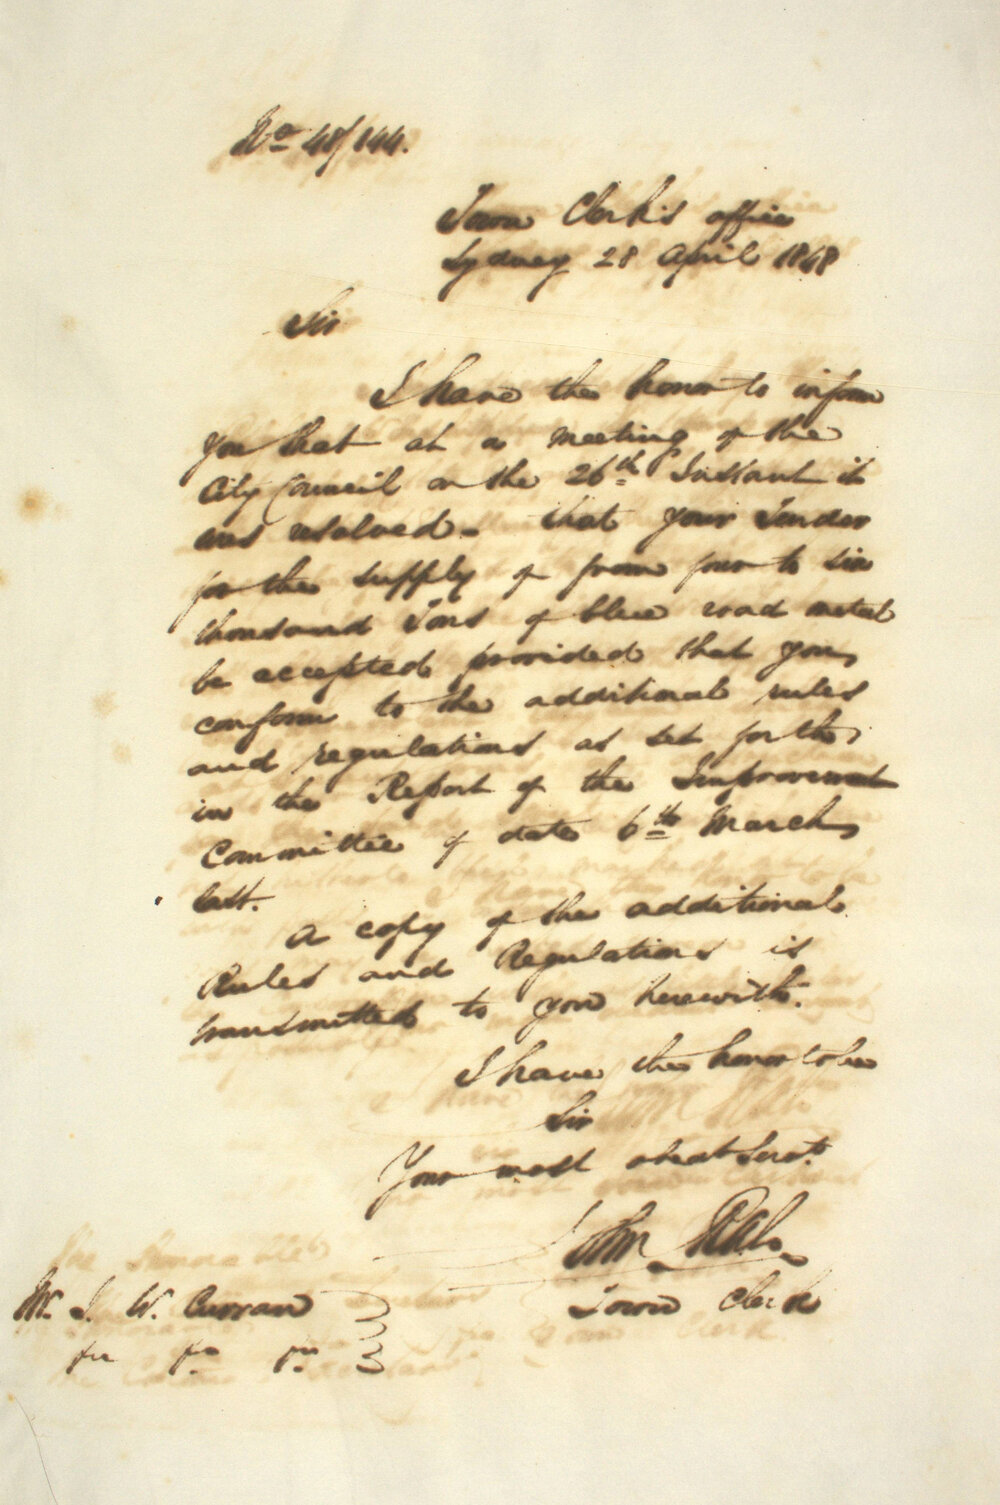 No 48/144.
Town Clerk's office
Sydney 28 April 1848
Sir
I have the honor to inform
you that at a meeting of the
City Council on the 26th Instant it
was resolved - that your Tender
for the supply of from four to six
thousand Tons of blue road metal
be accepted provided that you
conform to the additional rules
and regulations as set forth
in the Report of the Improvement
Committee of date 6th March
last.
A copy of the additional
Rules and Regulations is
transmitted to you herewith.
I have the honor to be
Sir
Your most obedt Servt.
John
Town Clerk
Mr. J. W. Curran